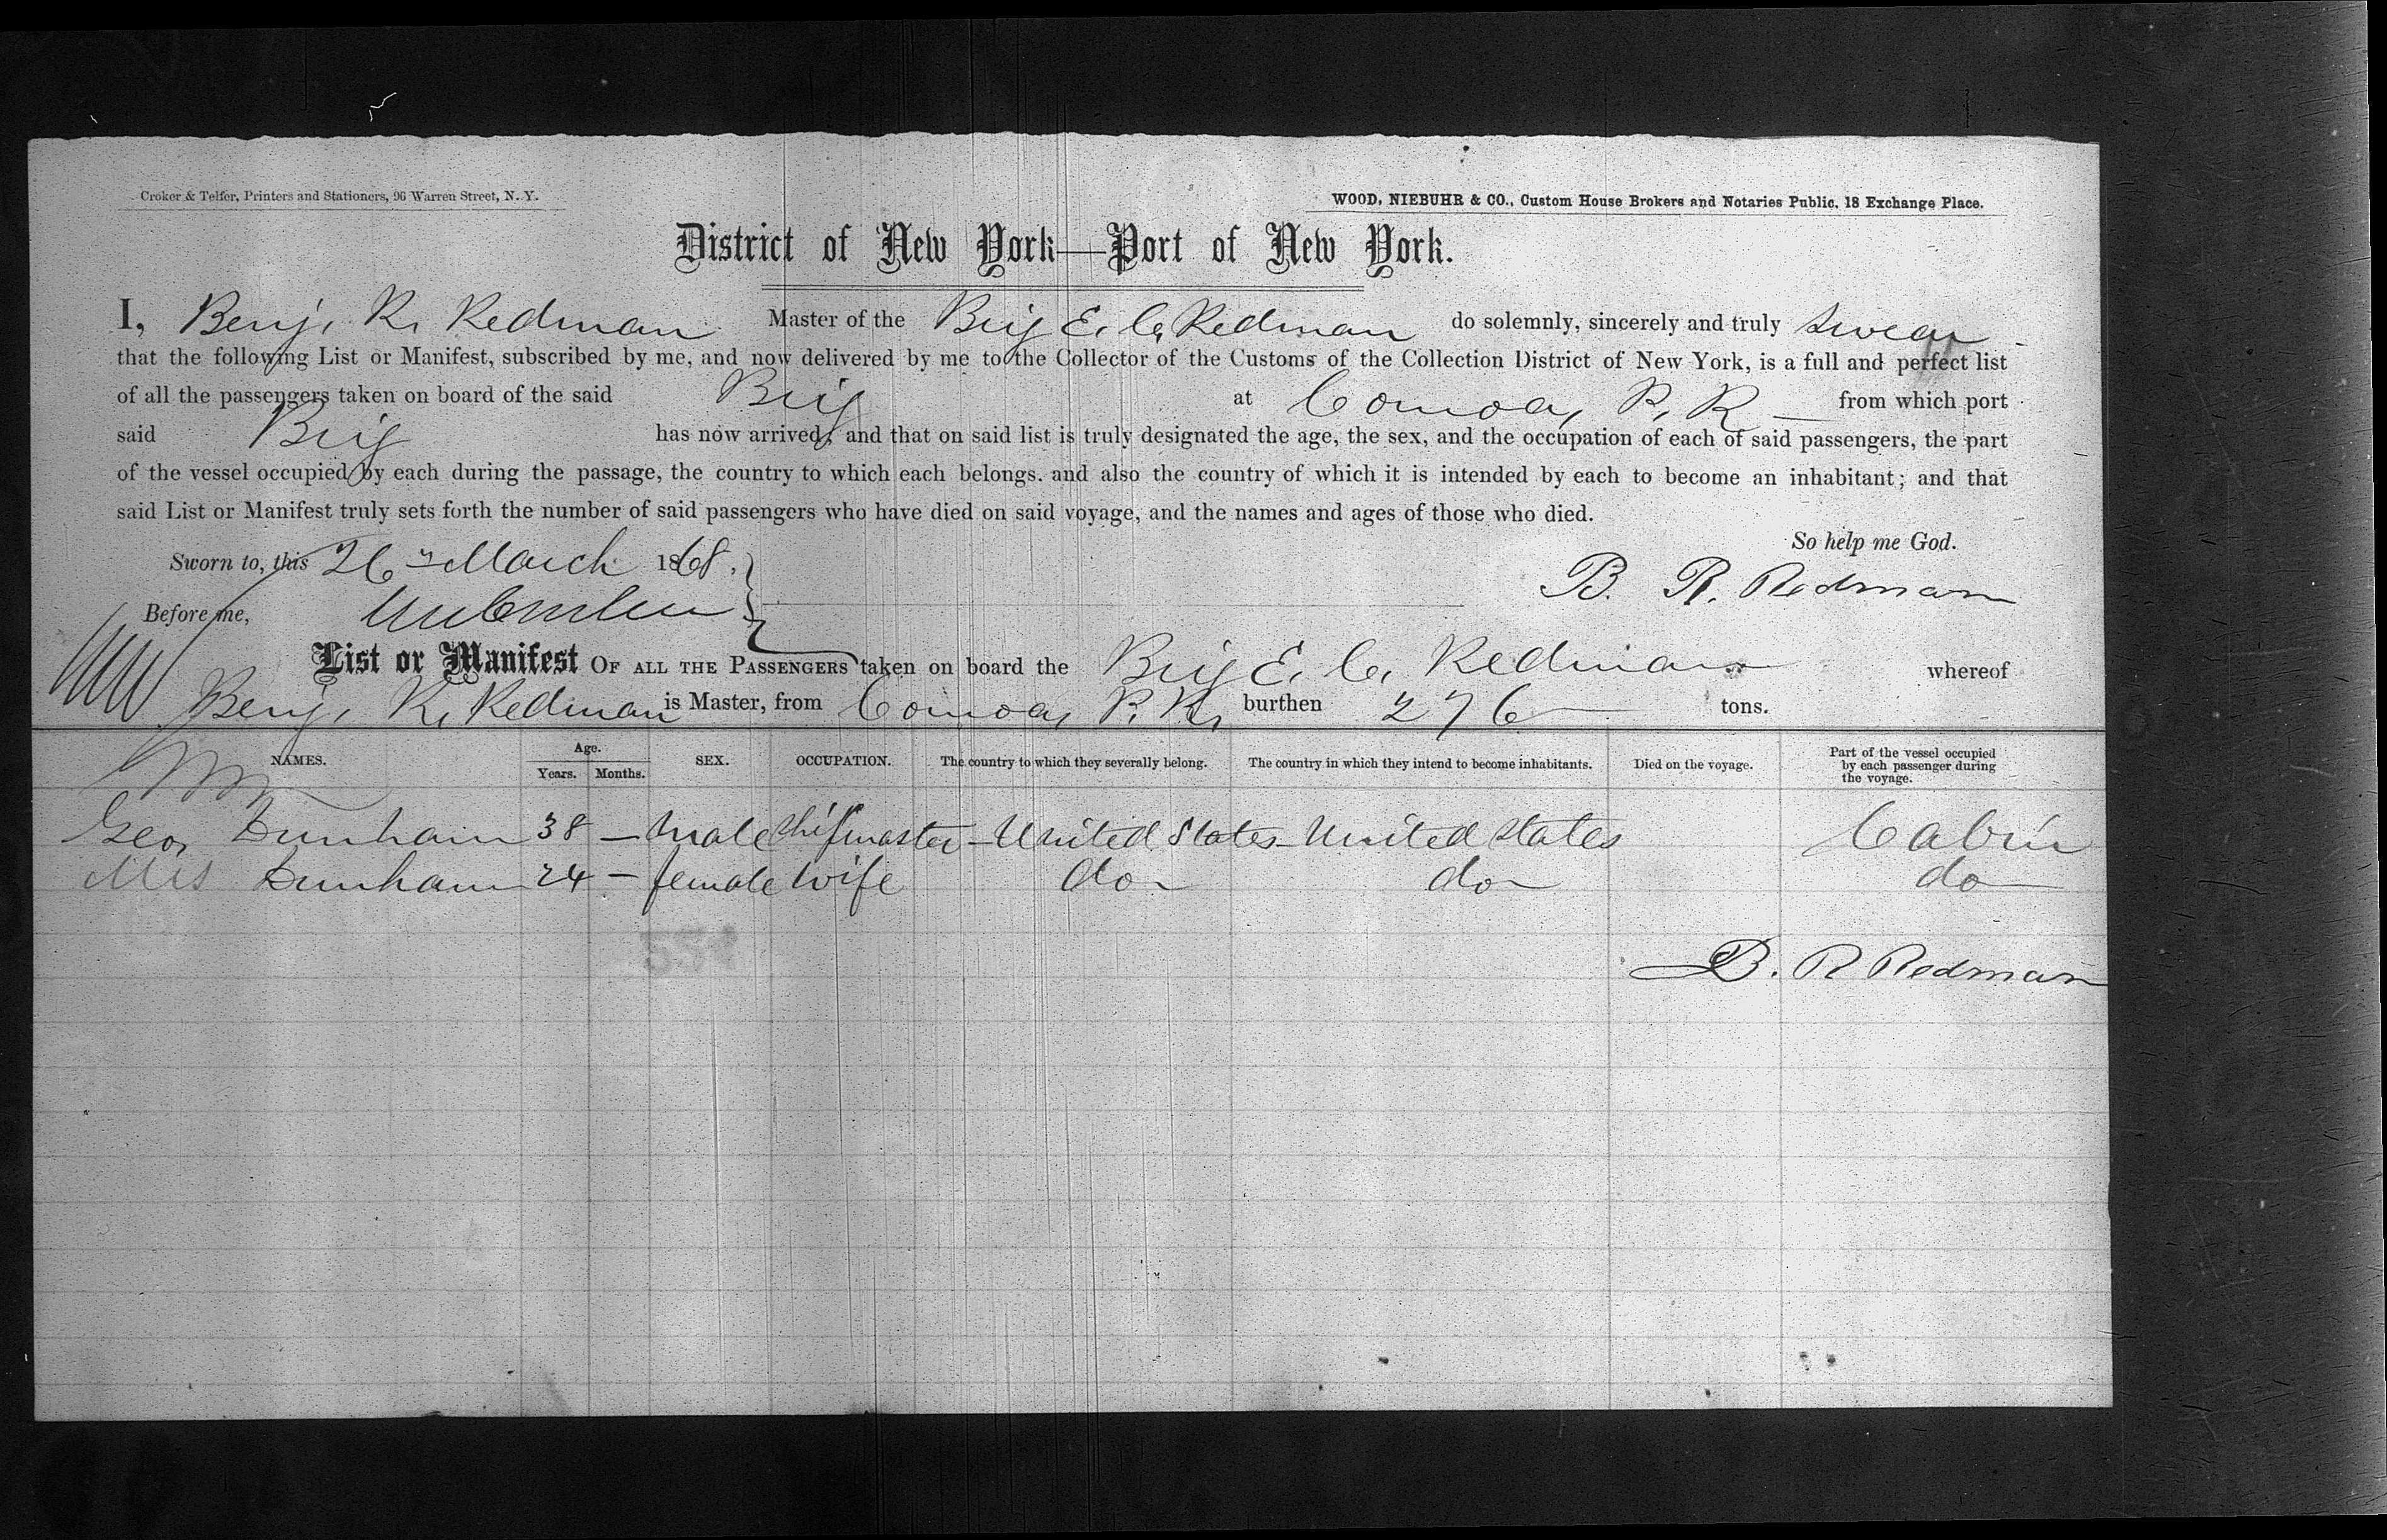 Croker & Telfer, Printers and Stationers, 96 Warren Street, N. Y.
WOOD, NIEBUHR & CO., Custom House Brokers and Notaries Public, 18 Exchange Place.
District of New York—Port of New York.
I, Benj. R. Redman Master of the Brig E. C. Redman do solemnly, sincerely and truly swear
that the following List or Manifest, subscribed by me, and now delivered by me to the Collector of the Customs of the Collection District of New York, is a full and perfect list
of all the passengers taken on board of the said Brig at Comoa, P. R from which port
said Brig has now arrived, and that on said list is truly designated the age, the sex, and the occupation of each of said passengers, the part
of the vessel occupied by each during the passage, the country to which each belongs. and also the country of which it is intended by each to become an inhabitant; and that
said List or Manifest truly sets forth the number of said passengers who have died on said voyage, and the names and ages of those who died.
So help me God.
Sworn to, this 26 March 1868.
B. R. Redman
Before me,
List or Manifest OF ALL THE PASSENGERS taken on board the Brig E. C. Redman whereof
Benj. R. Redman is Master, from Comoa, P. R. burthen 276 tons.
NAMES. Age. Years. Months. SEX. OCCUPATION. The country to which they severally belong. The country in which they intend to become inhabitants. Died on the voyage. Part of the vessel occupied by each passenger during the voyage.
Geo. Dunham 38 — Male Shipmaster — United States — United States Cabin
Mrs Dunham 24 — female wife do — do — do —
554
B. R Redman